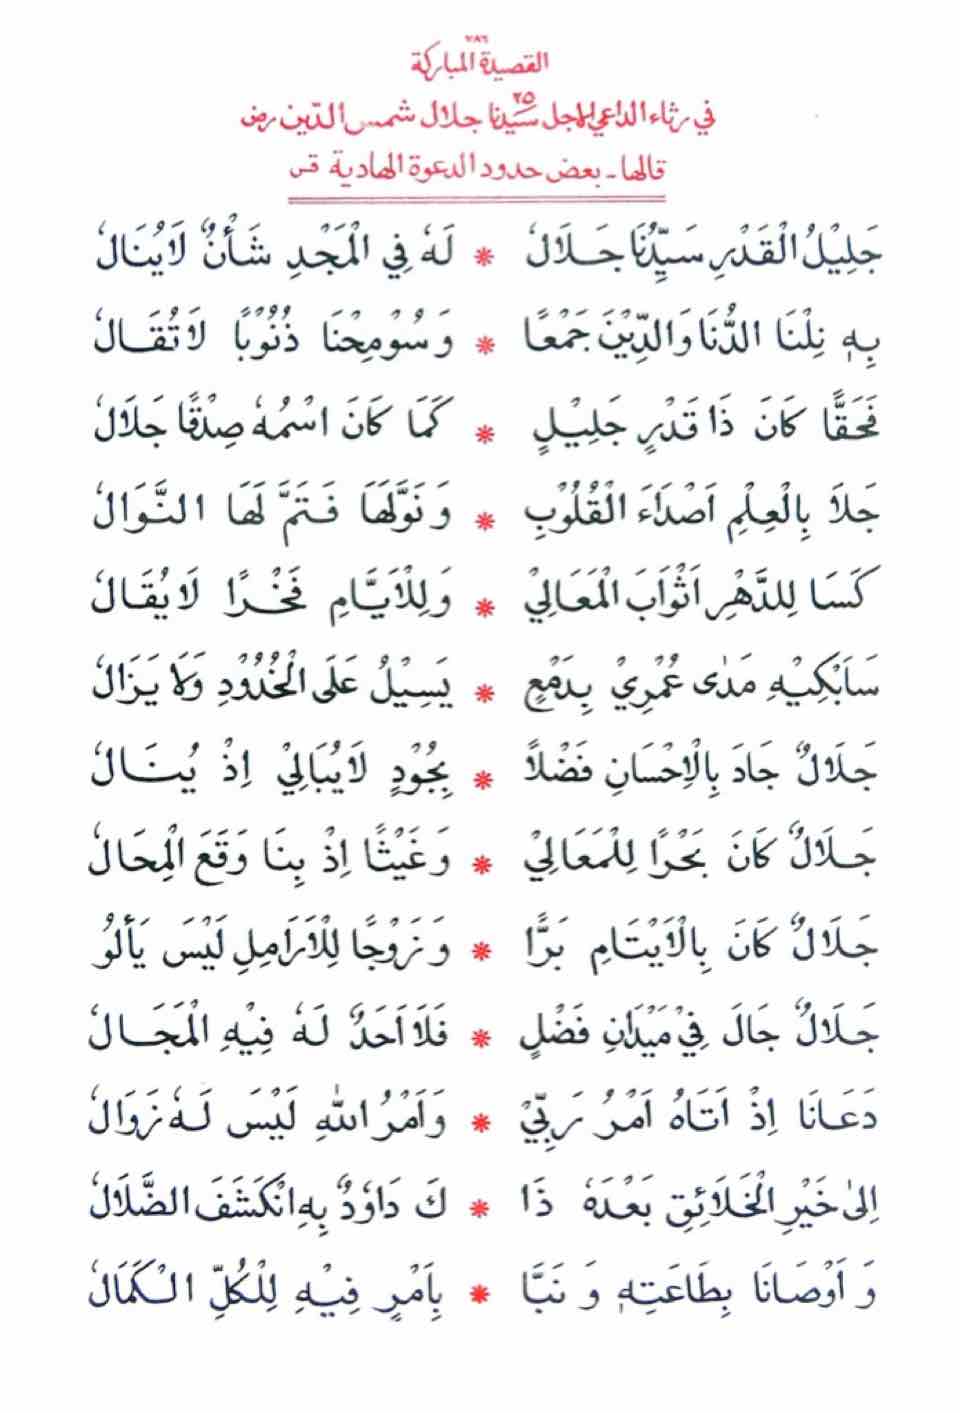 ٧٨٦
القصيدة المباركة
في رثاء الداعي الاجل سيدنا ٢٥ جلال شمس الدين رض
قالها - بعض حدود الدعوة الهادية قس
جَلِيْلُ الْقَدْرِ سَيِّدُنَا جَلَالٗ * لَهٗ فِي الْمَجْدِ شَأْنٌ لَا يُنَالٗ
بِهٖ نِلْنَا الدُّنَا وَالدِّيْنَ جَمْعًا * وَسُوْمِحْنَا ذُنُوْبًا لَا تُقَالٗ
فَحَقًّا كَانَ ذَا قَدْرٍ جَلِيْلٍ * كَمَا كَانَ اسْمُهٗ صِدْقًا جَلَالٗ
جَلَا بِالْعِلْمِ اَصْدَاءَ الْقُلُوْبِ * وَنَوَّلَهَا فَتَمَّ لَهَا النَّوَالٗ
كَسَا لِلدَّهْرِ اَثْوَابَ الْمَعَالِيْ * وَلِلْاَيَّامِ فَخْرًا لَا يُقَالٗ
سَاَبْكِيْهِ مَدٰى عُمْرِيْ بِدَمْعٍ * يَسِيْلُ عَلَى الْخُدُوْدِ وَلَا يَزَالٗ
جَلَالٌ جَادَ بِالْاِحْسَانِ فَضْلًا * بِجُوْدٍ لَا يُبَالِيْ اِذْ يُنَالٗ
جَلَالٌ كَانَ بَحْرًا لِلْمَعَالِيْ * وَغَيْثًا اِذْ بِنَا وَقَعَ الْمِحَالٗ
جَلَالٌ كَانَ بِالْاَيْتَامِ بَرًّا * وَزَوْجًا لِلْاَرَامِلِ لَيْسَ يَأْلُو
جَلَالٌ جَالَ فِيْ مَيْدَانِ فَضْلٍ * فَلَا اَحَدٌ لَهٗ فِيْهِ الْمَجَالٗ
دَعَانَا اِذْ اَتَاهُ اَمْرُ رَبِّيْ * وَاَمْرُ اللّٰهِ لَيْسَ لَهٗ زَوَالٗ
اِلٰى خَيْرِ الْخَلَائِقِ بَعْدَهٗ ذَا * كَ دَاوٗدٌ بِهِ انْكَشَفَ الضَّلَالٗ
وَ اَوْصَانَا بِطَاعَتِهٖ وَ نَبَّا * بِاَمْرٍ فِيْهِ لِلْكُلِّ الْكَمَالٗ